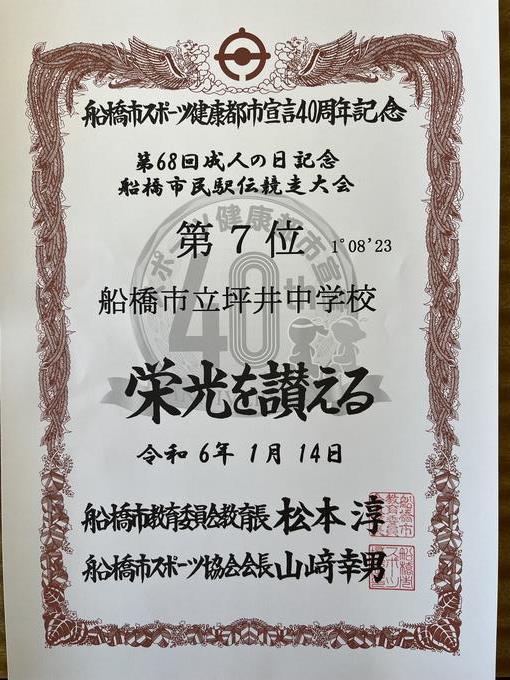 船橋市スポーツ健康都市宣言40周年記念
第68回成人の日記念
船橋市民駅伝競走大会
第7位 1°08'23
船橋市立坪井中学校
栄光を讃える
令和6年1月14日
船橋市教育委員会教育長 松本淳
船橋市スポーツ協会会長 山﨑幸男
スポーツ健康都市宣言
40